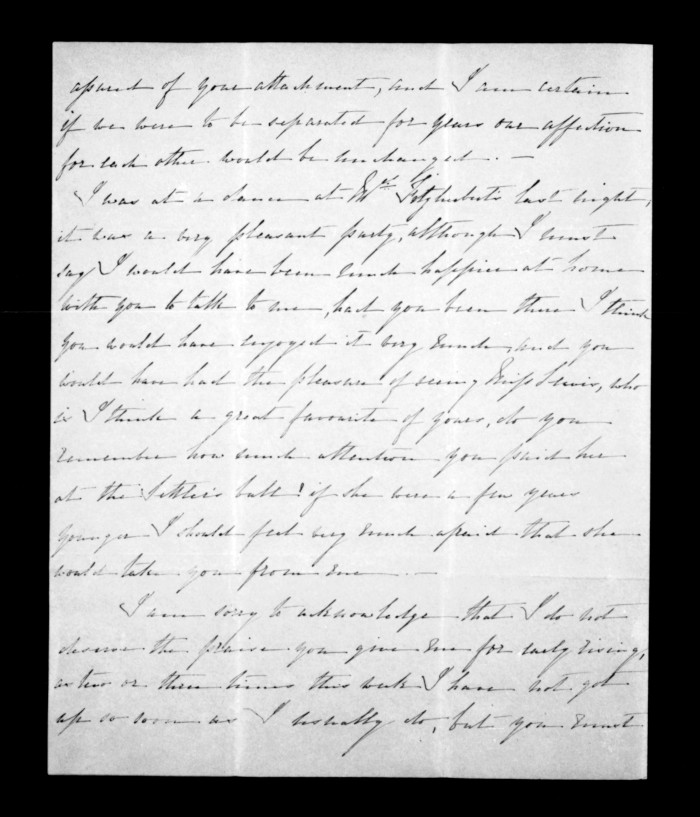 assured of your attachment, and I am certain
if we were to be separated for years our affection
for each other would be unchanged. —
I was at a dance at Mrs Fitzherberts last night,
it was a very pleasant party, although I must
say I would have been much happier at home
with you to talk to me, had you been there I think
you would have enjoyed it very much, and you
would have had the pleasure of seeing Miss Lewis, who
is I think a great favourite of yours, do you
remember how much attention you paid her
at the Settlers ball! if she were a few years
younger I should feel very much afraid that she
would take you from me. —
I am sorry to acknowledge that I do not
deserve the praise you give me for early rising,
as two or three times this week I have not got
up so soon as I usually do, but you must